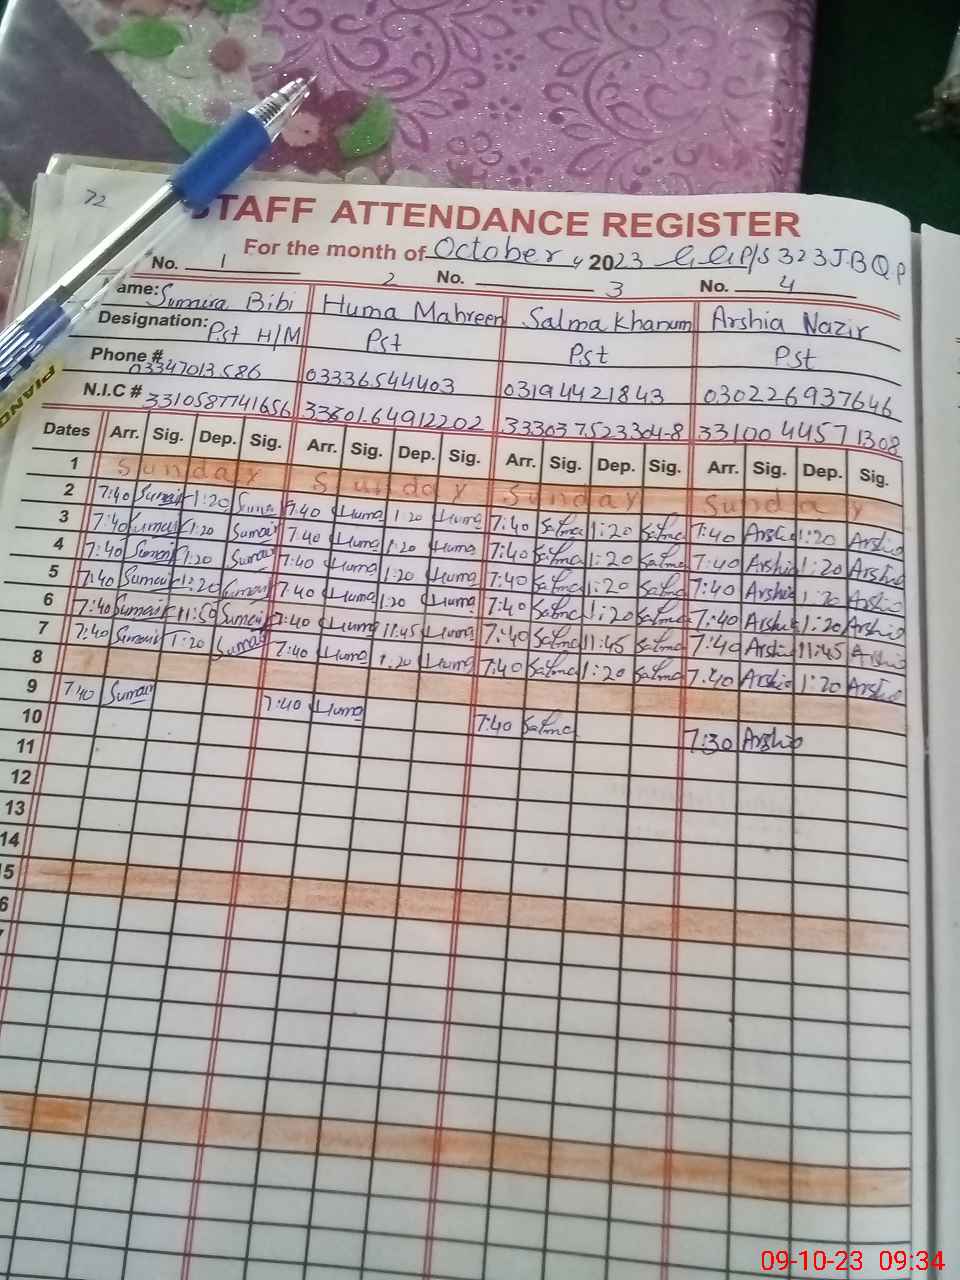 72
STAFF ATTENDANCE REGISTER
For the month of October, 2023 G.G.P/S 323 J.B Q.P
No. 1 2 No. 3 No. 4
ame: Sumaira Bibi Huma Mahreen Salma Khanum Arshia Nazir
Designation: Pst H/M Pst Pst Pst
Phone # 03347013586 03336544403 03194421843 030226937646
N.I.C # 3310587741656 3330164912202 333037523304-8 331004457 1308
Dates Arr. Sig. Dep. Sig. Arr. Sig. Dep. Sig. Arr. Sig. Dep. Sig. Arr. Sig. Dep. Sig.
1 Sunday Sunday Sunday Sunday
2 7:40 Sumair 1:20 Sumai 7:40 Huma 1:20 Huma 7:40 Salma 1:20 Salma 7:40 Arshia 1:20 Arshia
3 7:40 Sumair 1:20 Sumair 7:40 Huma 1:20 Huma 7:40 Salma 1:20 Salma 7:40 Arshia 1:20 Arshia
4 7:40 Sumair 1:20 Sumair 7:40 Huma 1:20 Huma 7:40 Salma 1:20 Salma 7:40 Arshia 1:20 Arshia
5 7:40 Sumair 1:20 Sumair 7:40 Huma 1:20 Huma 7:40 Salma 1:20 Salma 7:40 Arshia 1:20 Arshia
6 7:40 Sumair 11:50 Sumair 7:40 Huma 11:45 Huma 7:40 Salma 11:45 Salma 7:40 Arshia 11:45 Arshia
7 7:40 Sumair 1:20 Sumair 7:40 Huma 1:20 Huma 7:40 Salma 1:20 Salma 7:40 Arshia 1:20 Arshia
8
9 7:40 Sumair 7:40 Huma 7:40 Salma 7:30 Arshia
10
11
12
13
14
15
6
7
PIANO
09-10-23 09:34